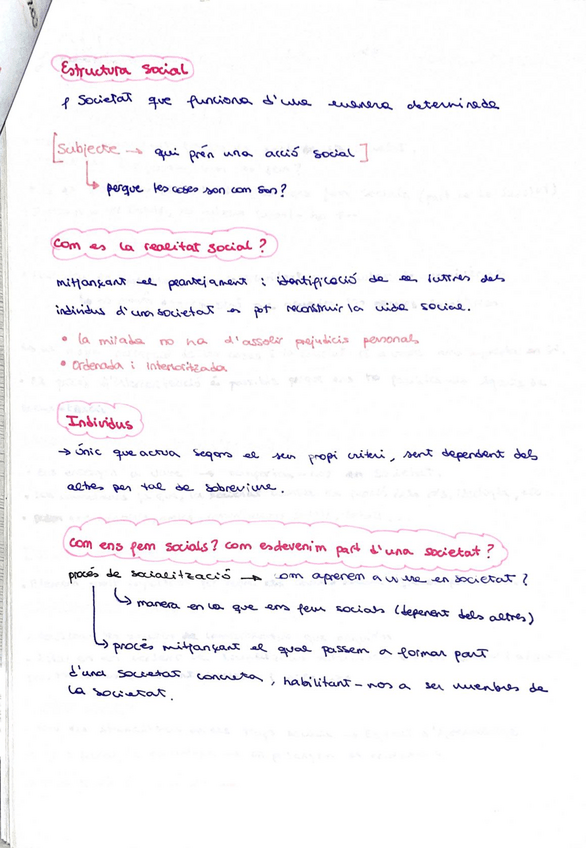 Estructura social
Societat que funciona d'una manera determinada
[Subjecte → qui prén una acció social]
↳ perque les coses son com son?
Com es la realitat social?
mitjançant el plantejament i identificació de les dels
individus d'una societat es pot reconstruir la vida social.
• la mirada no ha d'assolir prejudicis personals
• Ordenada i interioritzada
Individus
→ únic que actua segons el seu propi criteri, sent dependent dels
altres per tal de sobreviure.
Com ens fem socials? com esdevenim part d'una societat?
procés de socialització → com aprenem a viure en societat?
↳ manera en la que ens fem socials (depenent dels altres)
↳ procés mitjançant el qual passem a formar part
d'una societat concreta, habilitant-nos a ser membres de
la societat.